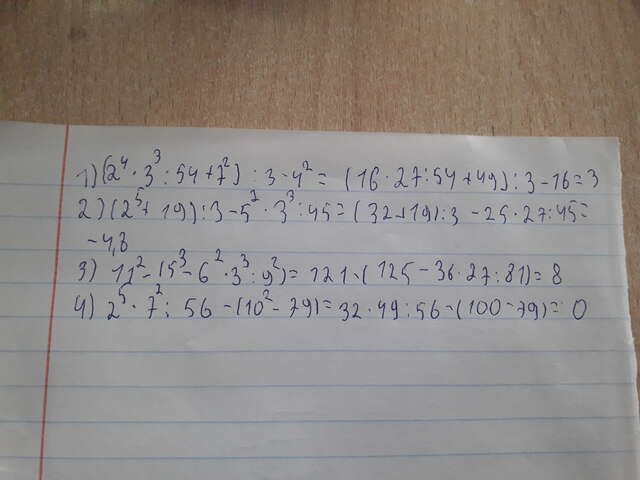 1) (2⁴ · 3³ : 54 + 7²) : 3 - 4² = (16 · 27 : 54 + 49) : 3 - 16 = 3
2) (2⁵ + 19) : 3 - 5² · 3³ : 45 = (32 + 19) : 3 - 25 · 27 : 45 =
-4,8
3) 11² - (5³ - 6² · 3³ : 9²) = 121 - (125 - 36 · 27 : 81) = 8
4) 2⁵ · 7² : 56 - (10² - 79) = 32 · 49 : 56 - (100 - 79) = 0